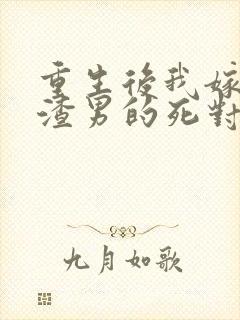 重生後我嫁
渣男的死對
九月如歌